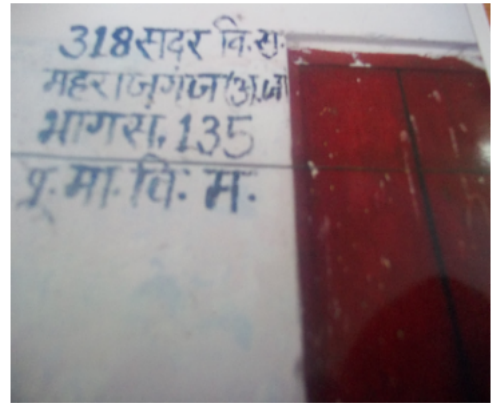 318 सदर वि.स.
महराजगंज (अ.जा
भाग स. 135
पू. मा. वि. म.